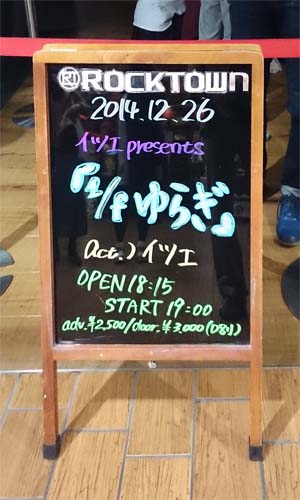 RT ROCKTOWN
2014.12.26
イツエ presents
『1/fゆらぎ』
act.) イツエ
OPEN 18:15
START 19:00
adv.¥2,500/door.¥3,000(D別)